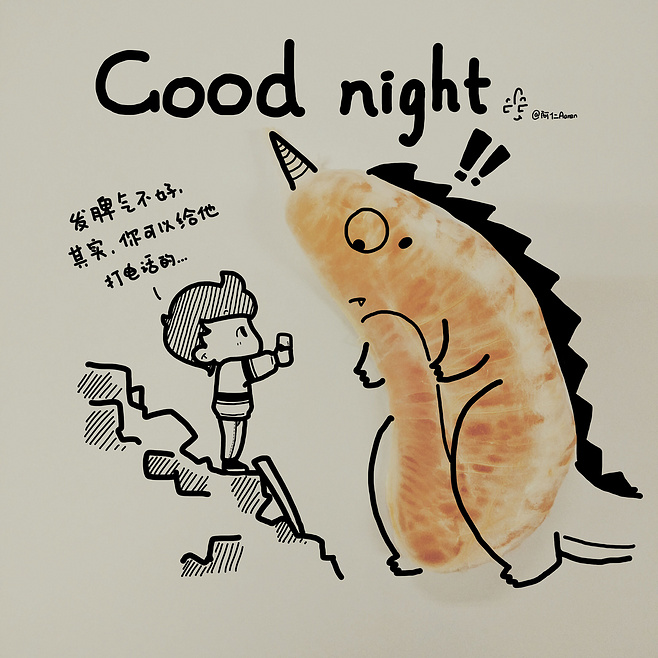 Good night
@阿仁Aaron
!!
发脾气不好，
其实，你可以给他
打电话的...